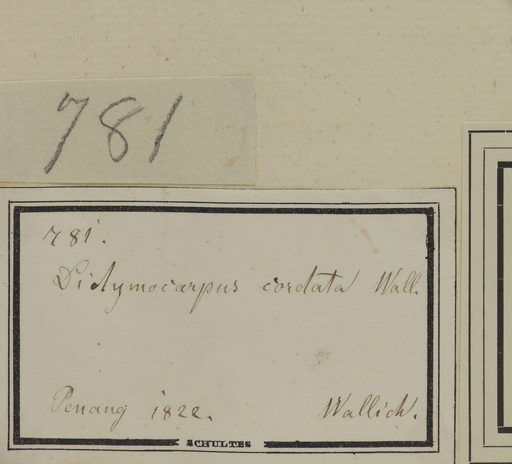 781
781.
Didymocarpus cordata Wall.
Penang 1822.
Wallich.
SCHULTES